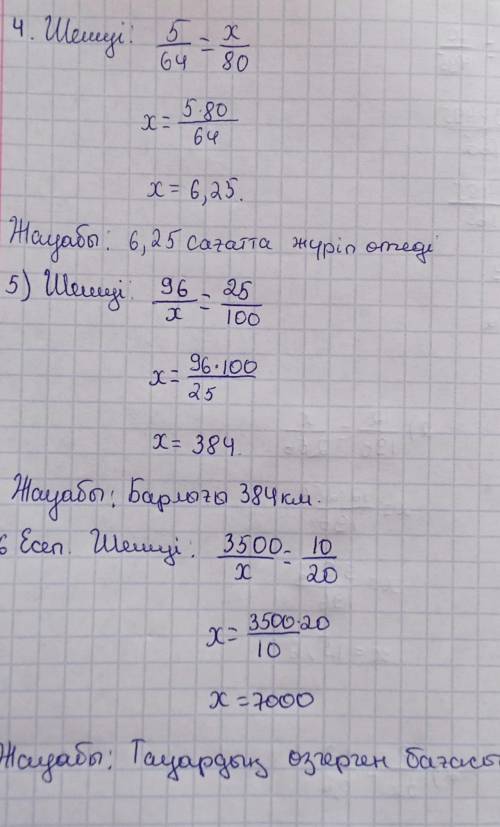 4. Шешуі: 5/64 = x/80
x = 5·80/64
x = 6,25.
Жауабы: 6,25 сағатта жүріп өтеді
5) Шешуі: 96/x = 25/100
x = 96·100/25
x = 384.
Жауабы: Барлығы 384 км.
6 Есеп. Шешуі: 3500/x = 10/20
x = 3500·20/10
x = 7000
Жауабы: Тауардың өзгерген бағасы